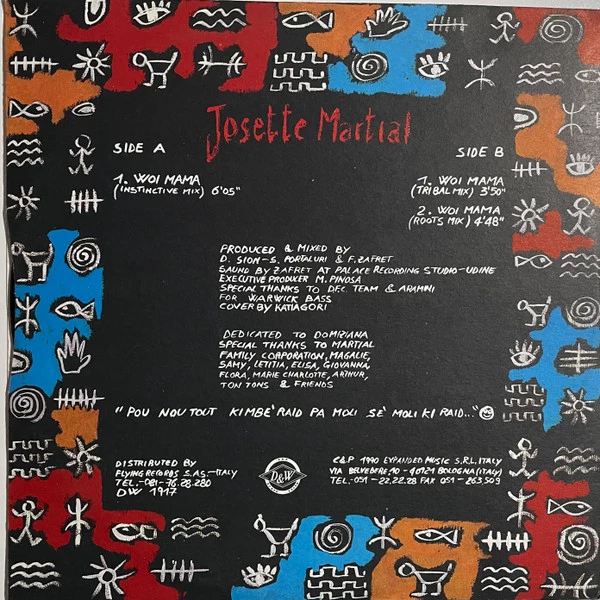 Josette Martial
SIDE A
SIDE B
1. WOI MAMA
(INSTINCTIVE MIX) 6'05"
1. WOI MAMA
(TRIBAL MIX) 3'50"
2. WOI MAMA
(ROOTS MIX) 4'48"
PRODUCED & MIXED BY
D. SION-S. PORTALURI & F. ZAFRET
SAUND BY ZAFRET AT PALACE RECORDING STUDIO-UDINE
EXECUTIVE PRODUCER M. PINOSA
SPECIAL THANKS TO DFC. TEAM & ARAMNI
FOR WARWICK BASS
COVER BY KATIAGORI
DEDICATED TO DOMIZIANA
SPECIAL THANKS TO MARTIAL
FAMILY CORPORATION, MAGALIE,
SAMY, LETITIA, ELISA, GIOVANNA,
FLORA, MARIE CHARLOTTE, ARTHUR,
TON TONS & FRIENDS
"POU NOU TOUT KIMBE' RAID PA MOLI SE' MOLI KI RAID..."
DISTRIBUTED BY
FLYING RECORDS S.A.S-ITALY
TEL.-081-76.28.280
DW 1917
D&W
C&P 1990 EXPANDED MUSIC S.R.L. ITALY
VIA BELVEDERE, 10 - 40121 BOLOGNA (ITALY)
TEL.-051-22.22.28 FAX 051-263.509